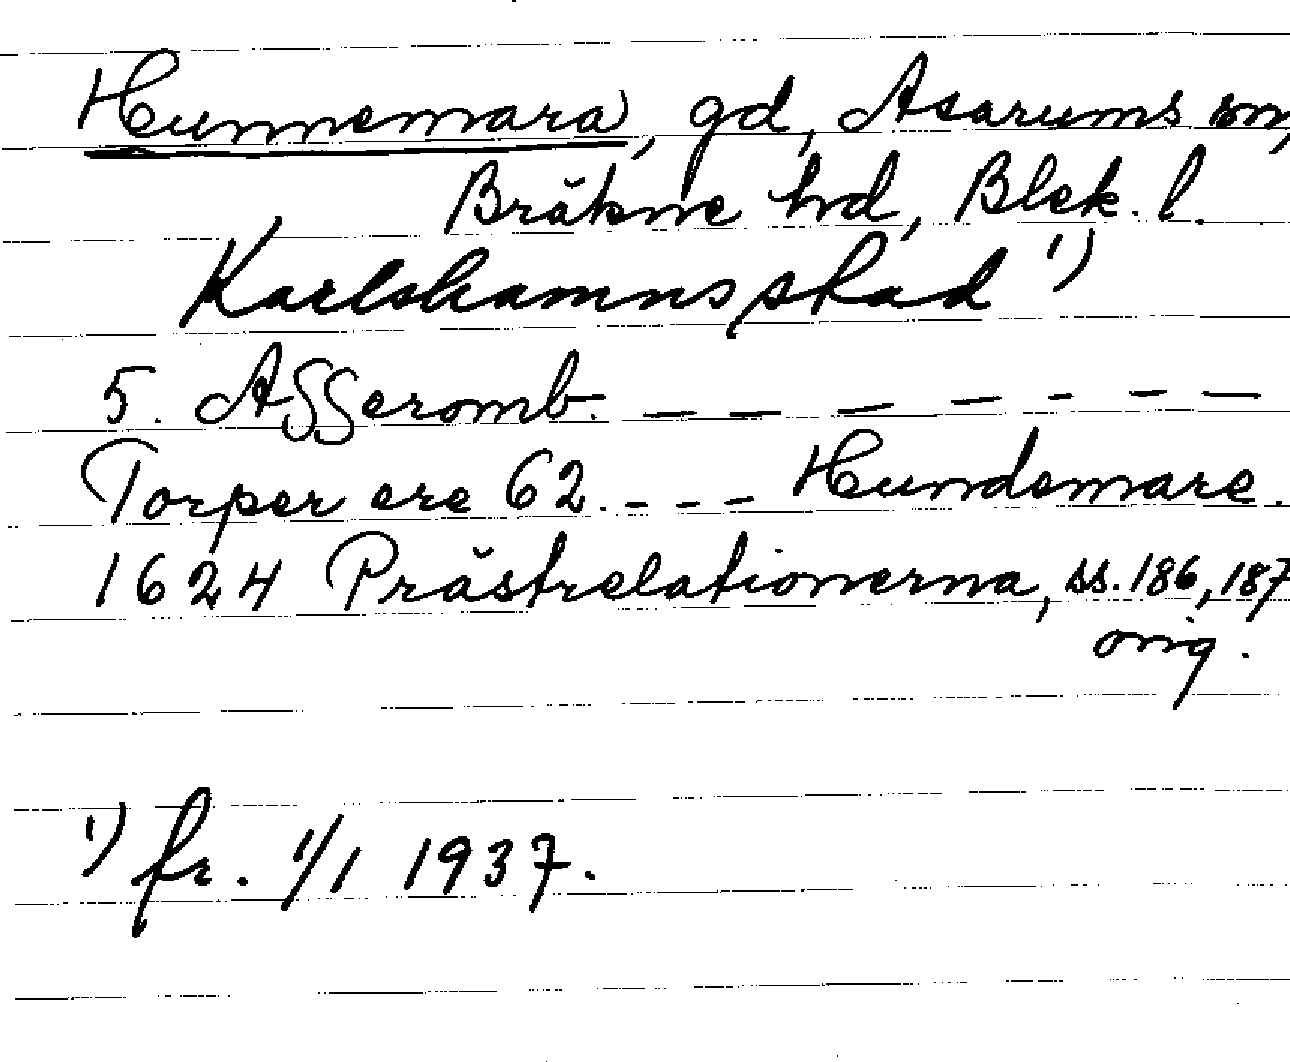 Hunnemara, gd, Asarums sn,
Bräkne hd, Blek. l.
Karlshamns stad ¹)
5. Asseromb. — — — — - — —
Torper ere 62. - - - Hundemare.
1624 Prästrelationerna, ss. 186, 187
orig.
¹) fr. 1/1 1937.